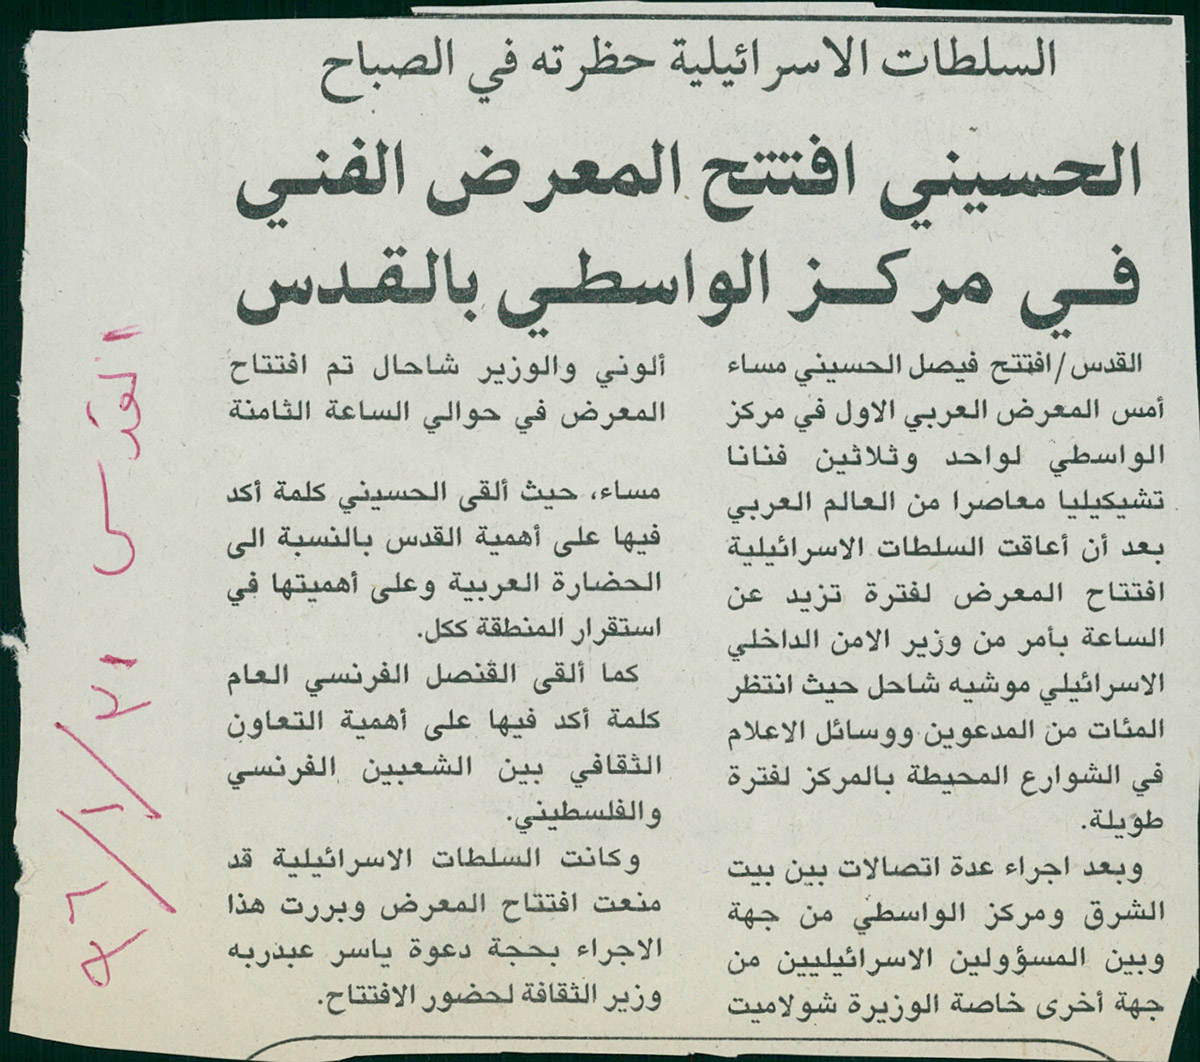 السلطات الاسرائيلية حظرته في الصباح
الحسيني افتتح المعرض الفني
في مركز الواسطي بالقدس
القدس/افتتح فيصل الحسيني مساء
أمس المعرض العربي الاول في مركز
الواسطي لواحد وثلاثين فنانا
تشيكيليا معاصرا من العالم العربي
بعد أن أعاقت السلطات الاسرائيلية
افتتاح المعرض لفترة تزيد عن
الساعة بأمر من وزير الامن الداخلي
الاسرائيلي موشيه شاحل حيث انتظر
المئات من المدعوين ووسائل الاعلام
في الشوارع المحيطة بالمركز لفترة
طويلة.
وبعد اجراء عدة اتصالات بين بيت
الشرق ومركز الواسطي من جهة
وبين المسؤولين الاسرائيليين من
جهة أخرى خاصة الوزيرة شولاميت
ألوني والوزير شاحال تم افتتاح
المعرض في حوالي الساعة الثامنة
مساء، حيث ألقى الحسيني كلمة أكد
فيها على أهمية القدس بالنسبة الى
الحضارة العربية وعلى أهميتها في
استقرار المنطقة ككل.
كما ألقى القنصل الفرنسي العام
كلمة أكد فيها على أهمية التعاون
الثقافي بين الشعبين الفرنسي
والفلسطيني.
وكانت السلطات الاسرائيلية قد
منعت افتتاح المعرض وبررت هذا
الاجراء بحجة دعوة ياسر عبدربه
وزير الثقافة لحضور الافتتاح.
القدس ٢١/١/٩٦